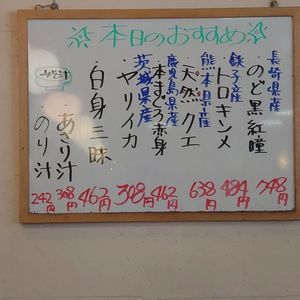 本日のおすすめ
長崎県産
のど黒紅瞳
748円
銚子産
トロキンメ
484円
熊本県産
天然クエ
638円
鹿児島県産
本まぐろ赤身
462円
茨城県産
ヤリイカ
348円
白身三昧
462円
みそ汁
あさり汁
308円
のり汁
242円